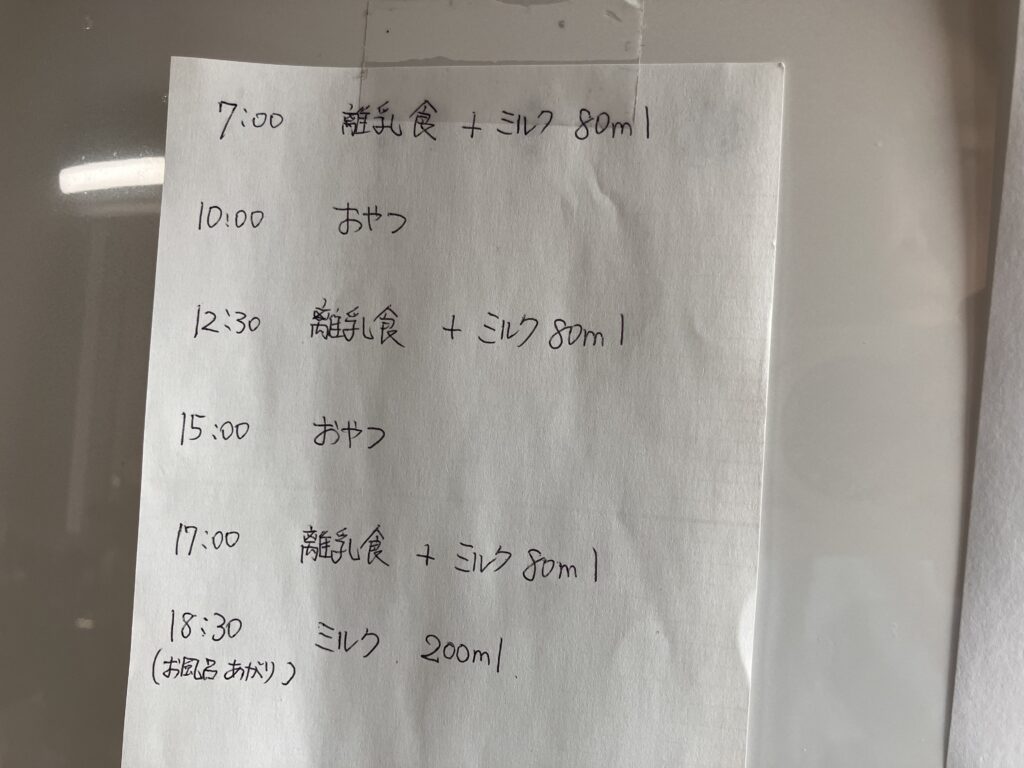 7:00 離乳食 + ミルク 80ml
10:00 おやつ
12:30 離乳食 + ミルク 80ml
15:00 おやつ
17:00 離乳食 + ミルク 80ml
18:30 ミルク 200ml
(お風呂あがり)